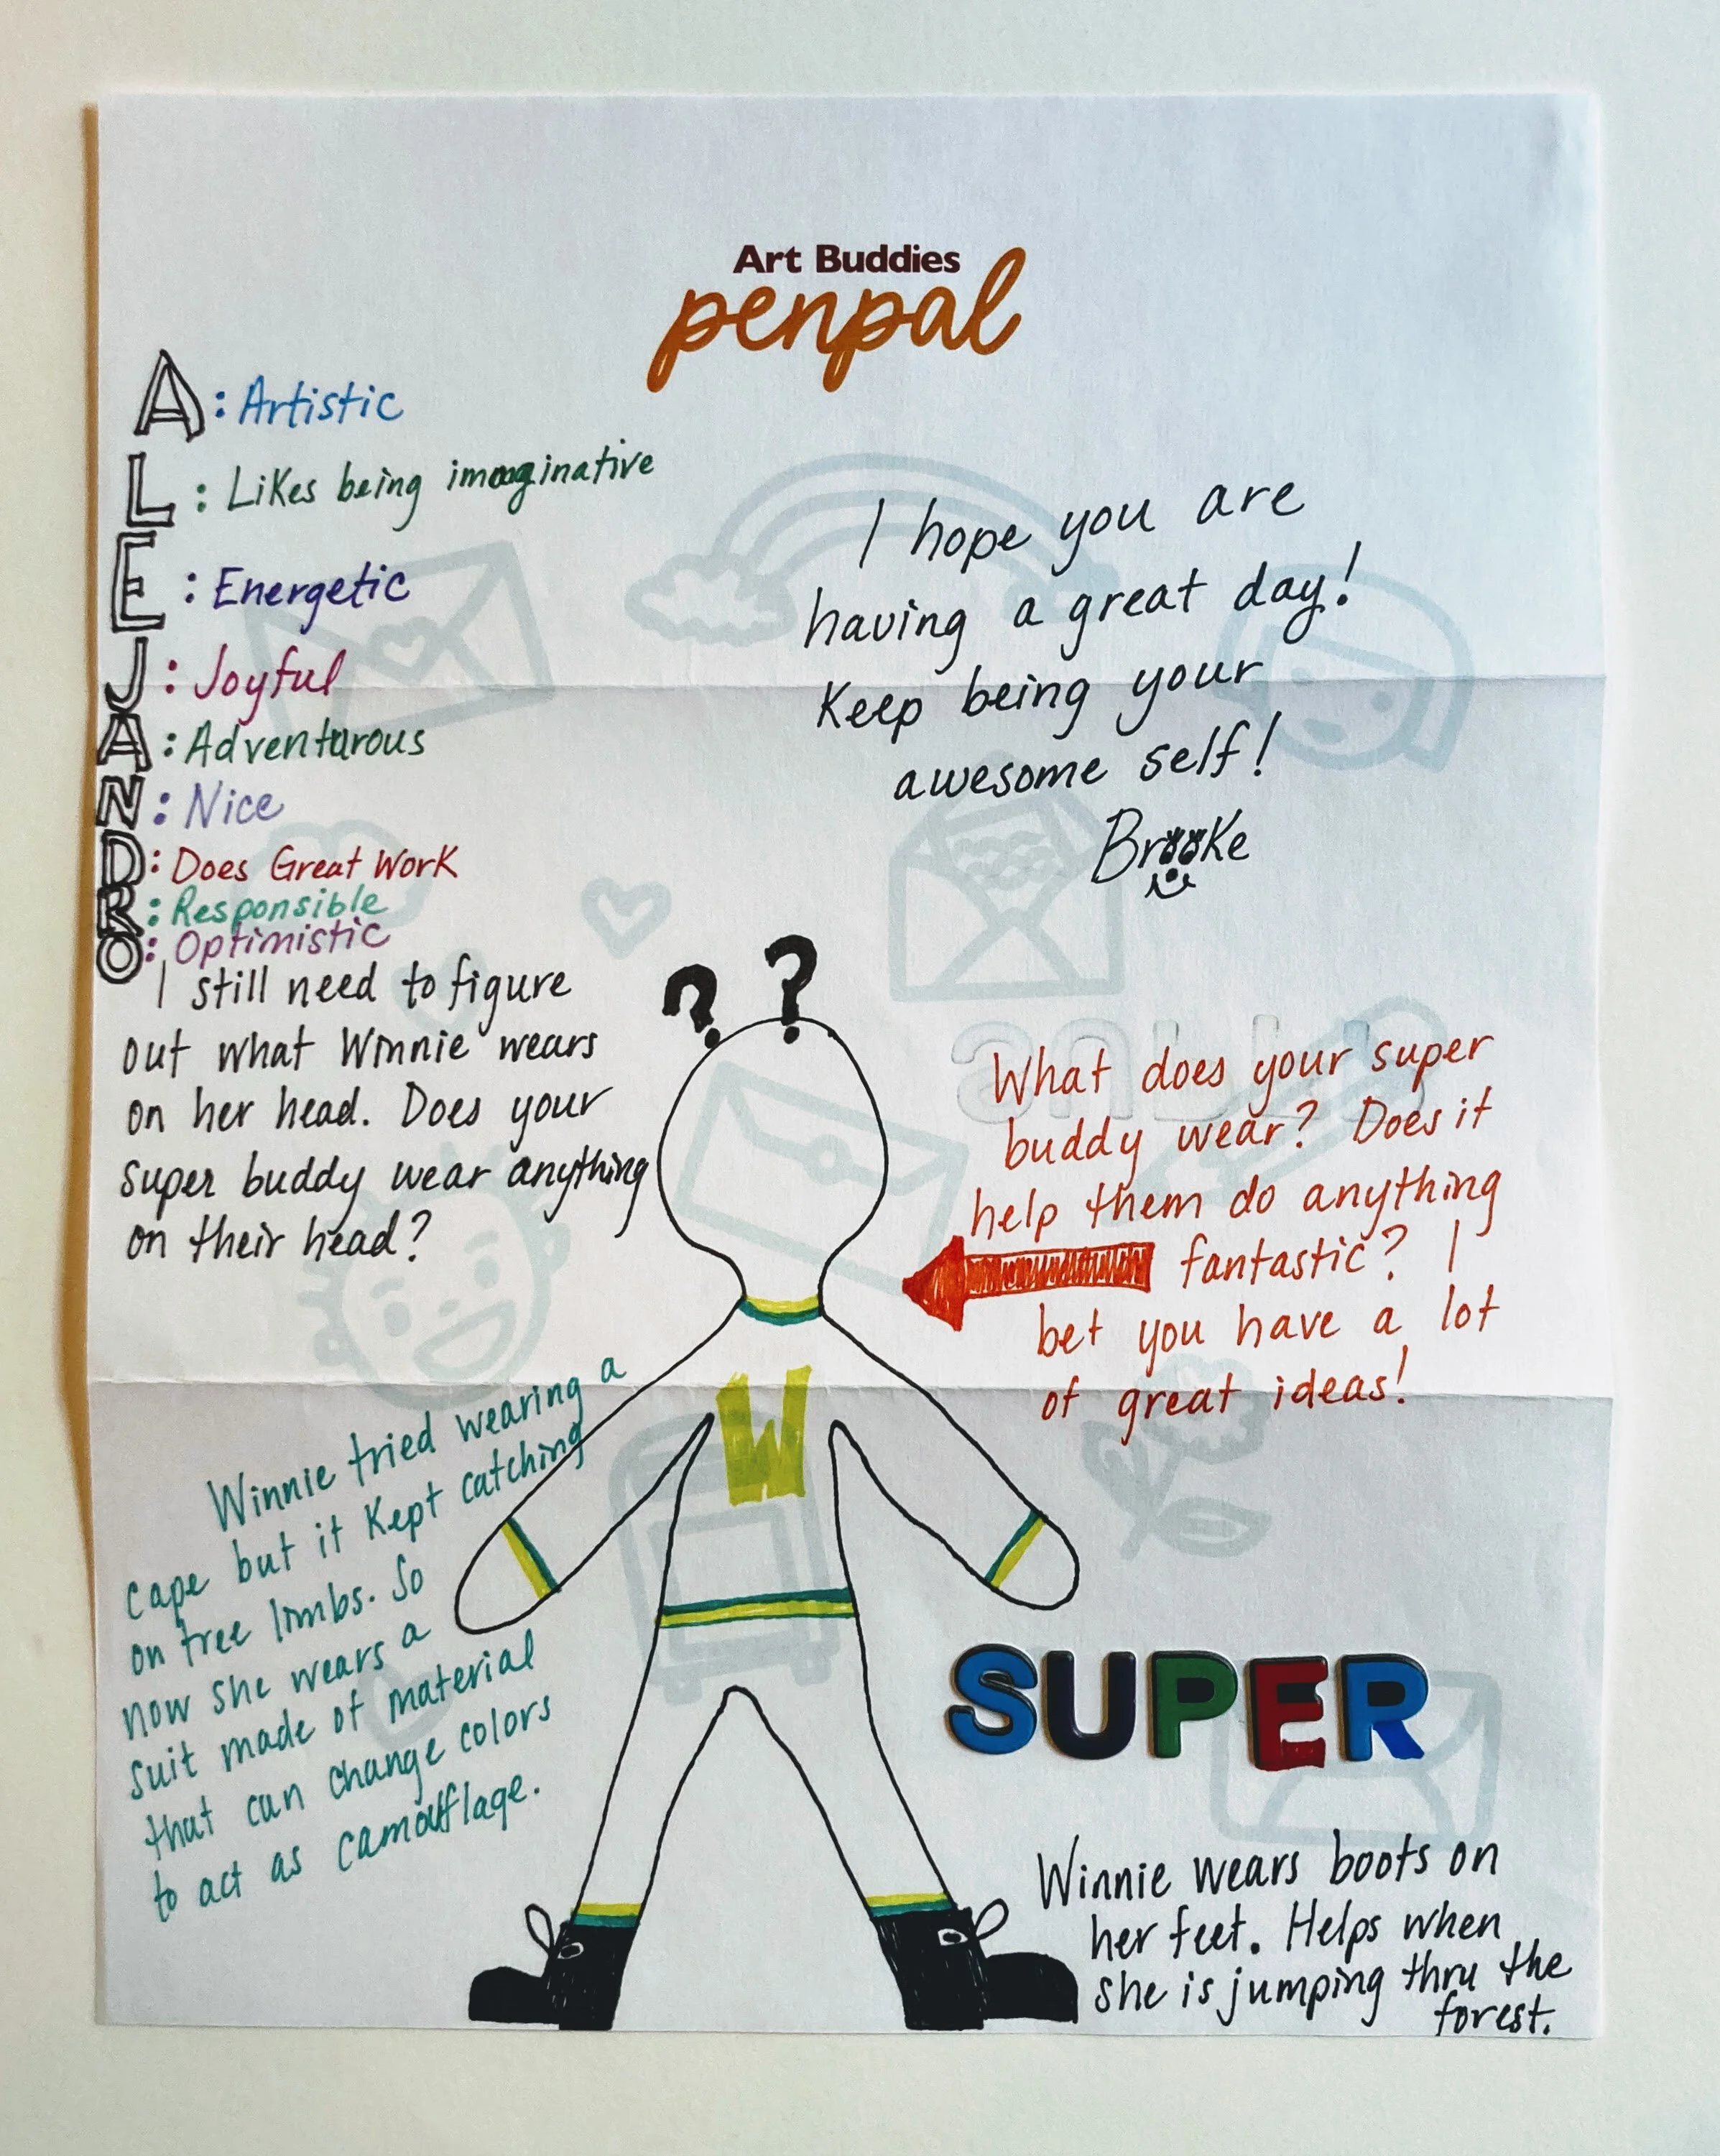 Art Buddies
penpal
A: Artistic
L: Likes being imaginative
E: Energetic
J: Joyful
A: Adventurous
N: Nice
D: Does Great Work
R: Responsible
O: Optimistic
I hope you are
having a great day!
Keep being your
awesome self!
Brooke
I still need to figure
out what Winnie wears
on her head. Does your
super buddy wear anything
on their head?
? ?
What does your super
buddy wear? Does it
help them do anything
fantastic? I
bet you have a lot
of great ideas!
W
Winnie tried wearing a
cape but it kept catching
on tree limbs. So
now she wears a
suit made of material
that can change colors
to act as camouflage.
SUPER
Winnie wears boots on
her feet. Helps when
she is jumping thru the
forest.